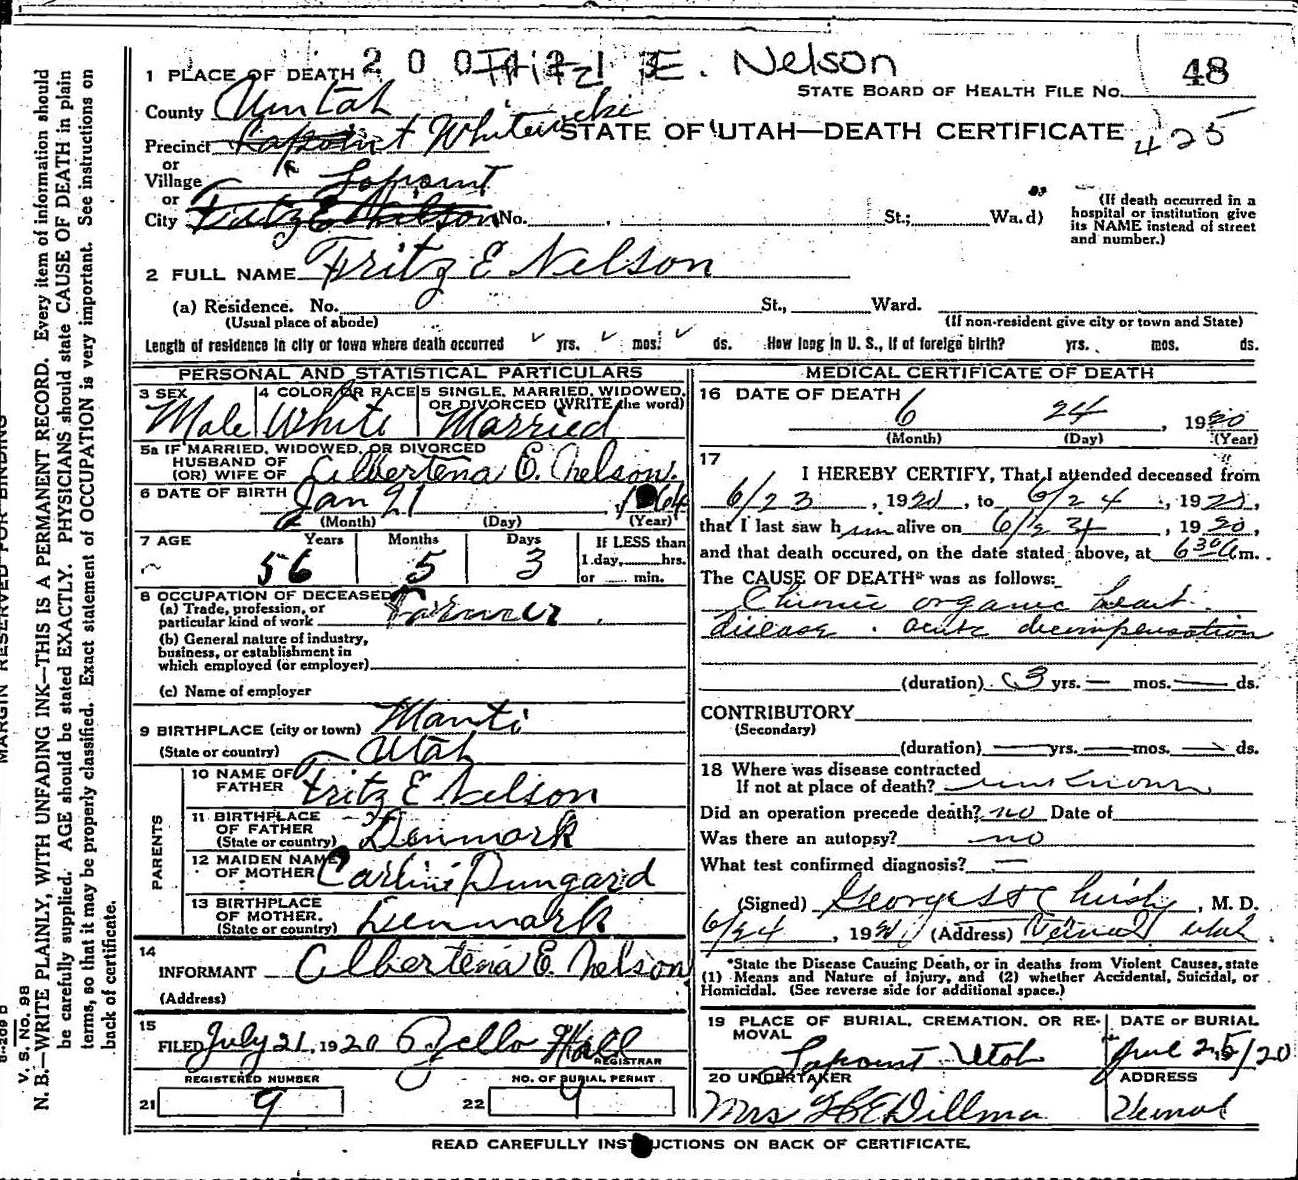 2 0 0 Fritz E. Nelson
1 PLACE OF DEATH
STATE BOARD OF HEALTH FILE No. 48
County Uintah
Precinct Lapoint Whiterocks
STATE OF UTAH—DEATH CERTIFICATE 425
or
Village Lapoint
or
City Fritz E Nelson No. St.; Wa.d)
(If death occurred in a
hospital or institution give
its NAME instead of street
and number.)
2 FULL NAME Fritz E Nelson
(a) Residence. No. St., Ward.
(Usual place of abode) (If non-resident give city or town and State)
Length of residence in city or town where death occurred yrs. mos. ds. How long in U. S., if of foreign birth? yrs. mos. ds.
PERSONAL AND STATISTICAL PARTICULARS
3 SEX Male
4 COLOR OR RACE White
5 SINGLE, MARRIED, WIDOWED,
OR DIVORCED (WRITE the word)
Married
5a IF MARRIED, WIDOWED, OR DIVORCED
HUSBAND OF
(OR) WIFE OF Albertena E. Nelson.
6 DATE OF BIRTH Jan 21, 1864
(Month) (Day) (Year)
7 AGE Years Months Days If LESS than
56 5 3 1 day, hrs.
or min.
8 OCCUPATION OF DECEASED
(a) Trade, profession, or
particular kind of work Farmer
(b) General nature of industry,
business, or establishment in
which employed (or employer)
(c) Name of employer
9 BIRTHPLACE (city or town) Manti
(State or country) Utah
PARENTS
10 NAME OF
FATHER Fritz E Nelson
11 BIRTHPLACE
OF FATHER
(State or country) Denmark
12 MAIDEN NAME
OF MOTHER Carline Dungard
13 BIRTHPLACE
OF MOTHER.
(State or country) Denmark
14
INFORMANT Albertena E. Nelson
(Address)
15
FILED July 21, 1920 Zello Hall
REGISTRAR
REGISTERED NUMBER NO. OF BURIAL PERMIT
21 9 22 4
MEDICAL CERTIFICATE OF DEATH
16 DATE OF DEATH
6 24, 1920
(Month) (Day) (Year)
17
I HEREBY CERTIFY, That I attended deceased from
6/23, 1920, to 6/24, 1920,
that I last saw him alive on 6/24, 1920,
and that death occured, on the date stated above, at 630 a m.
The CAUSE OF DEATH* was as follows:
Chronic organic heart
disease. acute decompensation
(duration) 3 yrs. — mos. — ds.
CONTRIBUTORY
(Secondary)
(duration) — yrs. — mos. — ds.
18 Where was disease contracted
If not at place of death? unknown
Did an operation precede death? no Date of
Was there an autopsy? no
What test confirmed diagnosis? —
(Signed) George H Christy, M. D.
6/24, 192 (Address) Vernal Utah
*State the Disease Causing Death, or in deaths from Violent Causes, state
(1) Means and Nature of Injury, and (2) whether Accidental, Suicidal, or
Homicidal. (See reverse side for additional space.)
19 PLACE OF BURIAL, CREMATION, OR RE-
MOVAL
Lapoint Utah
DATE OF BURIAL
June 25/20
20 UNDERTAKER
Mrs H E Dillman
ADDRESS
Vernal
READ CAREFULLY INSTRUCTIONS ON BACK OF CERTIFICATE.
MARGIN RESERVED FOR BINDING
V. S. No. 98
N. B.—WRITE PLAINLY, WITH UNFADING INK—THIS IS A PERMANENT RECORD. Every item of information should
be carefully supplied. AGE should be stated EXACTLY. PHYSICIANS should state CAUSE OF DEATH in plain
terms, so that it may be properly classified. Exact statement of OCCUPATION is very important. See instructions on
back of certificate.